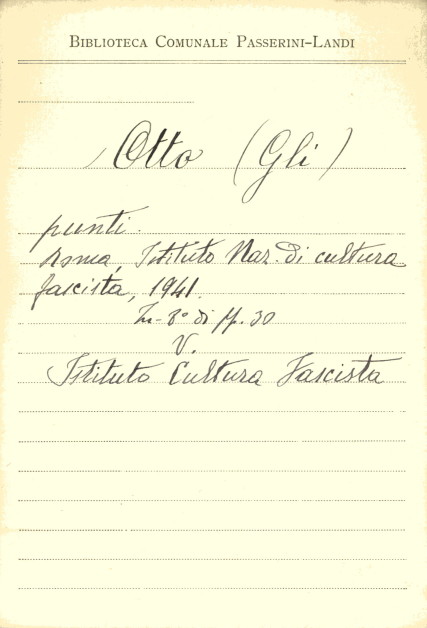 BIBLIOTECA COMUNALE PASSERINI-LANDI
Otto (Gli)
punti.
Roma, Istituto Naz. di cultura
fascista, 1941.
In-8° di pp. 30
V.
Istituto Cultura Fascista